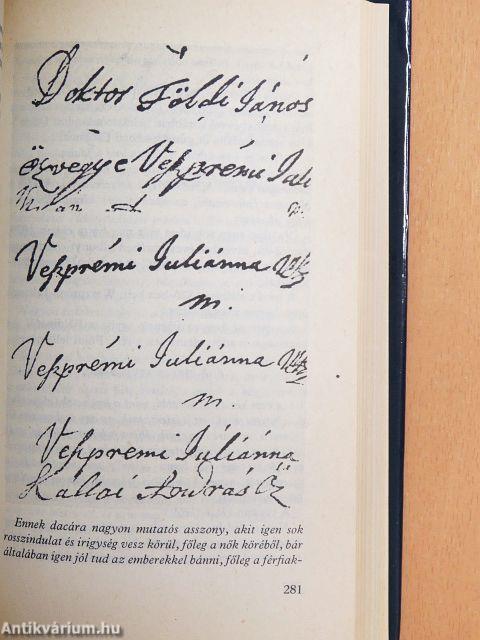 Doktor Földi János
özvegye Veſzprémi Juli
Veſzprémi Juliánna
m.
Veſzprémi Juliánna
m.
Veſzpremi Juliánna
Kallai András Öz
Ennek dacára nagyon mutatós asszony, akit igen sok
rosszindulat és irigység vesz körül, főleg a nők köréből, bár
általában igen jól tud az emberekkel bánni, főleg a férfiak-
281
Antikvárium.hu